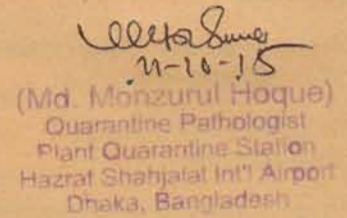 11-10-15
(Md. Monzurul Hoque)
Quarantine Pathologist
Plant Quarantine Station
Hazrat Shahjalal Int'l Airport
Dhaka, Bangladesh